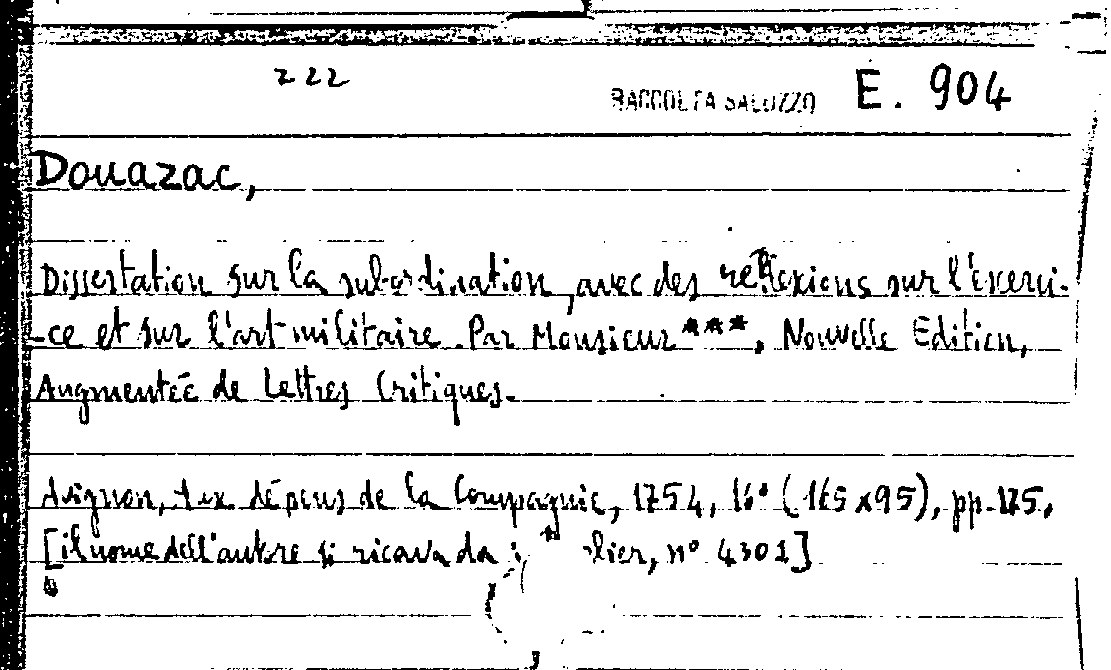 222
RACCOLTA SALUZZO E. 904
Douazac,
Dissertation sur la subordination, avec des reflexions sur l'exerci-
-ce et sur l'art militaire. Par Monsieur ***, Nouvelle Edition,
Augmentée de Lettres Critiques.
Avignon, Aux dépens de la Compagnie, 1754, 16° (165x95), pp. 175.
[il nome dell'autore si ricava da : lier, n° 4301]